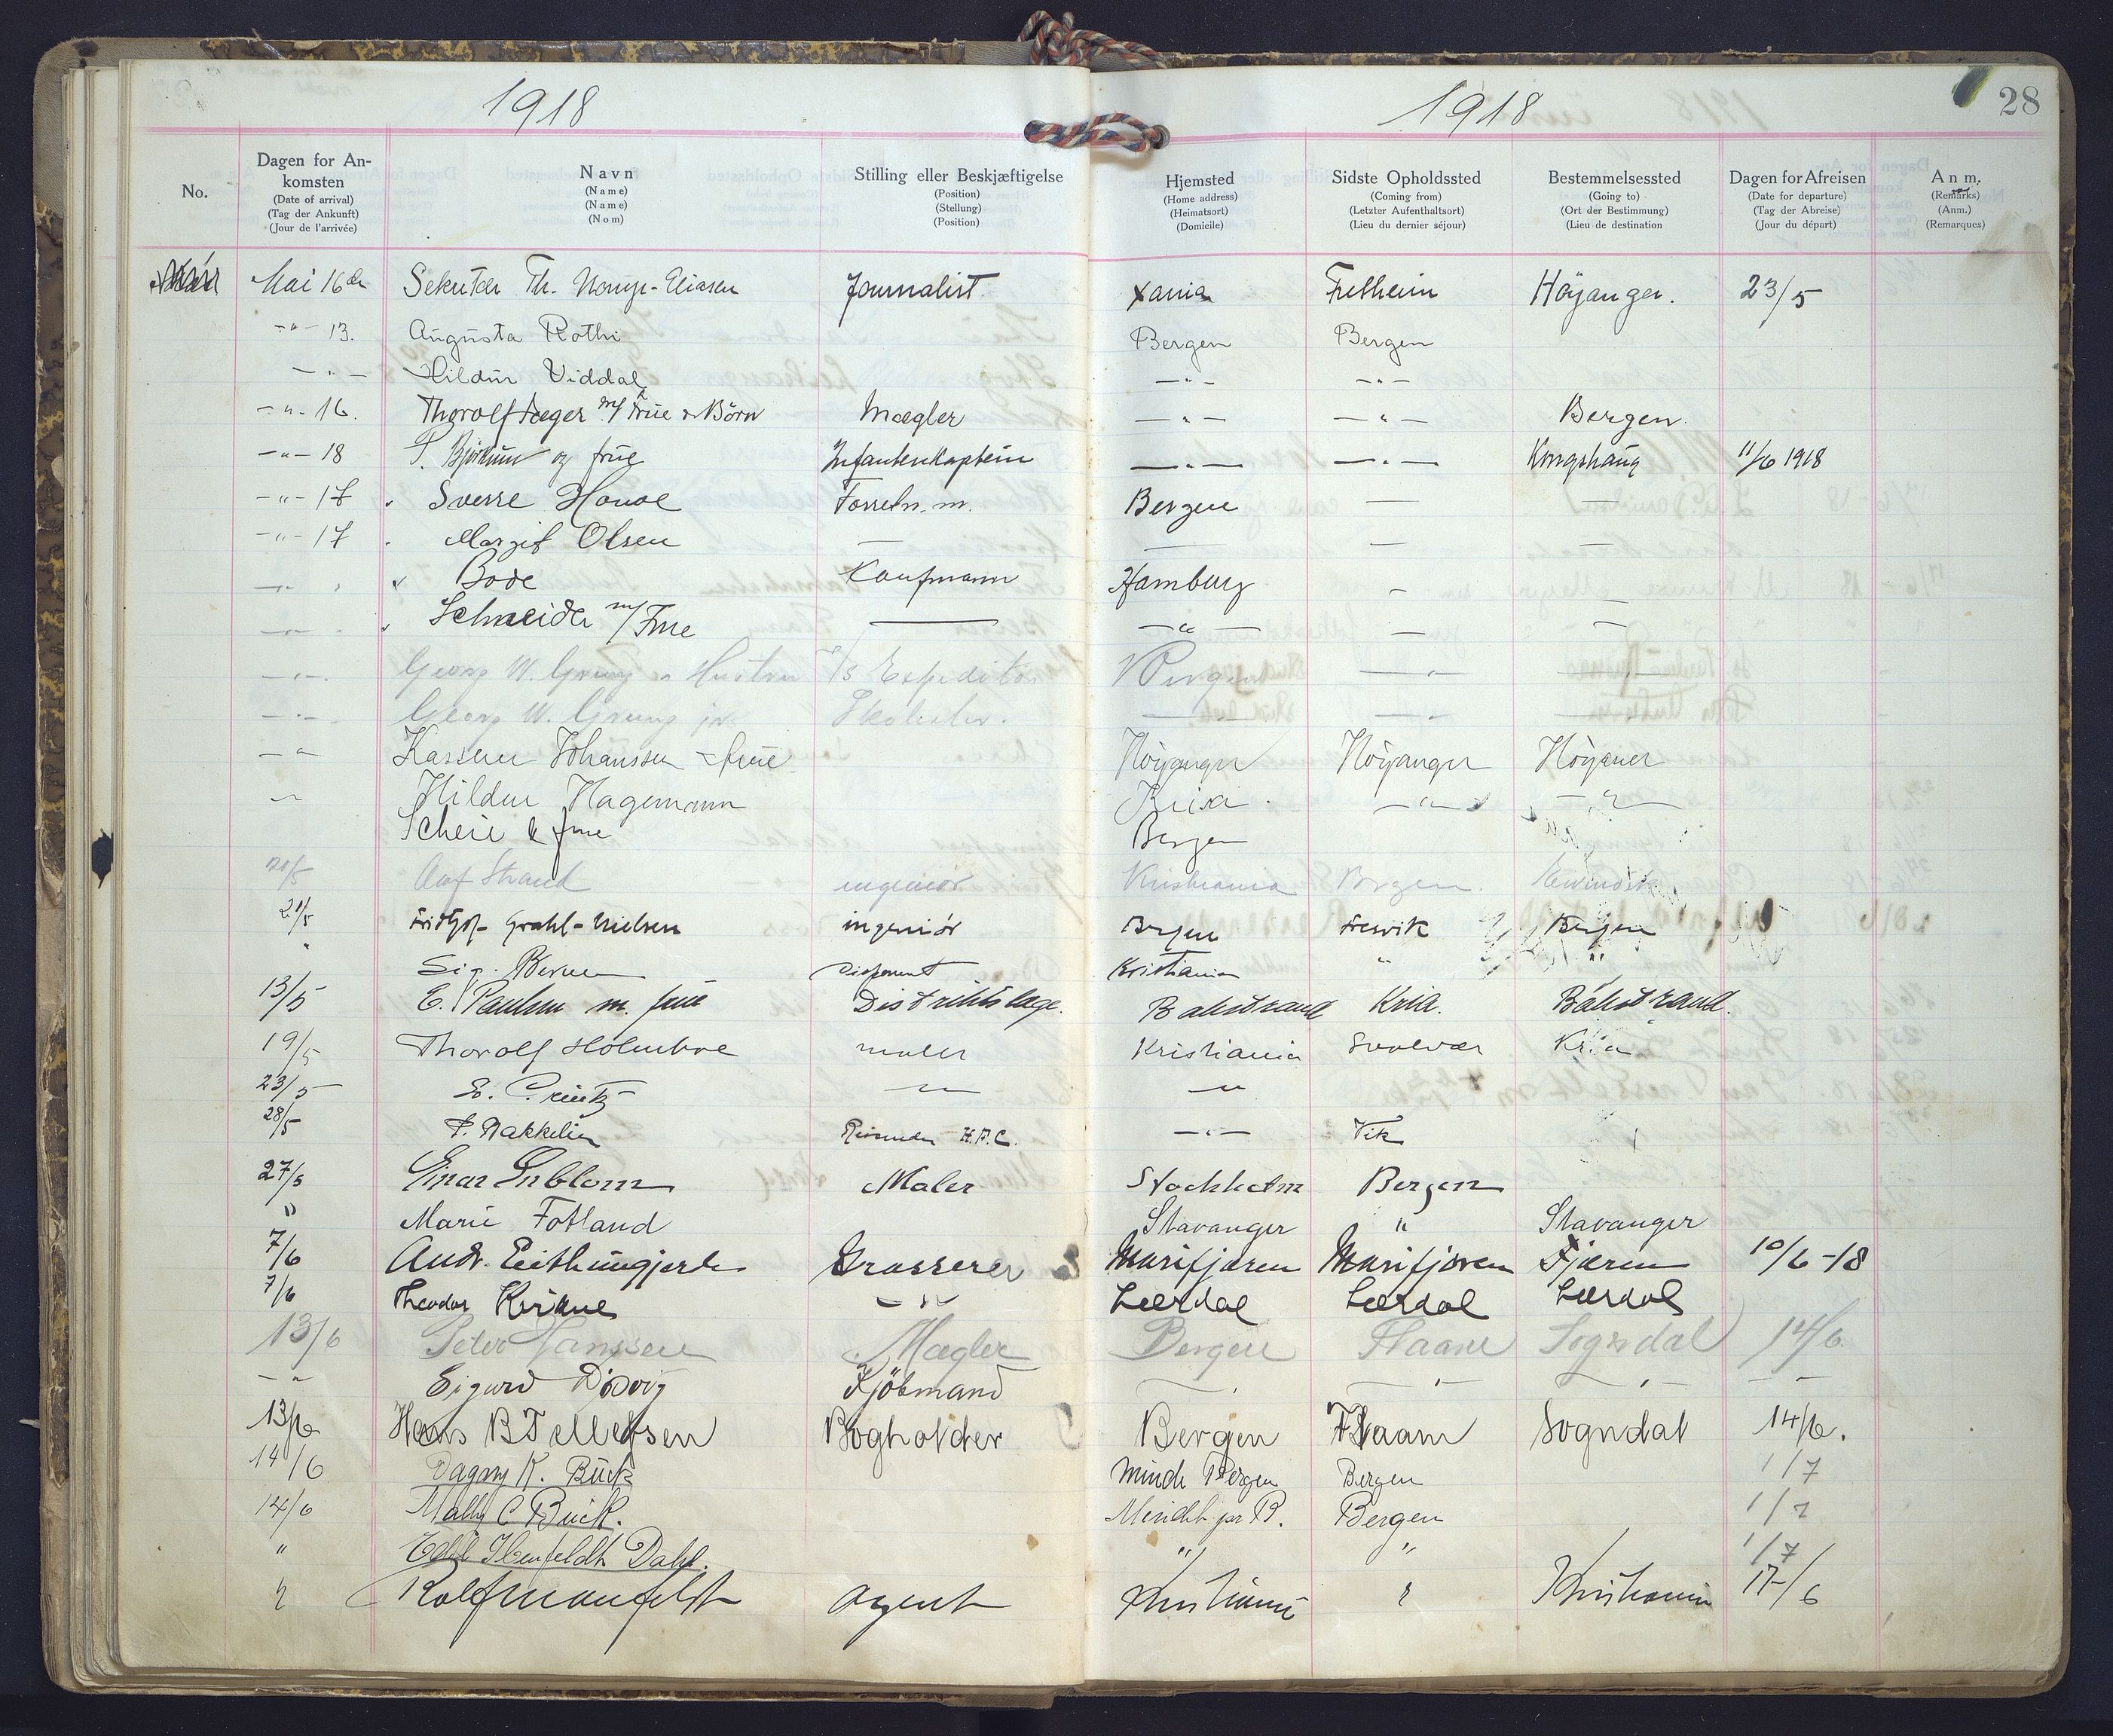 1918 1918 28
No. Dagen for Ankomsten (Date of arrival) (Tag der Ankunft) (Jour de l'arrivée) Navn (Name) (Name) (Nom) Stilling eller Beskjæftigelse (Position) (Stellung) (Position) Hjemsted (Home address) (Heimatsort) (Domicile) Sidste Opholdssted (Coming from) (Letzter Aufenthaltsort) (Lieu du dernier séjour) Bestemmelsessted (Going to) (Ort der Bestimmung) (Lieu de destination Dagen for Afreisen (Date for departure) (Tag der Abreise) (Jour du départ) Anm. (Remarks) (Anm.) (Remarques)
Mai 16de Th. Journalist Xania Fretheim Höyanger. 23/5
-"- 13. Augusta Rothi Bergen Bergen
-"- Hildur Viddal -"- -"-
-"- 16. Thorolf Jæger m/ Frue & Börn Mægler -"- -"- Bergen.
-"- 18 og frue Infanterikaptein -"- -"- Kongshaug 11/6 1918
-"- 17 " Sverre Hovoe Forretn. m. Bergen — —
-"- 17 " Margit Olsen — — — —
-"- " Bode Kaufmann Hamburg — —
-"- " Schneider m/ Frue — -"- — —
-"- Georg W. Grung & Hustru Expeditör Bergen -"- -"-
-"- Georg W. Grung jr. — -"- -"-
-"- Kasserer Johanssen & frue Höyanger Höyanger
-"- Hildur Hagemann -"- -"-
Scheie & frue Bergen
20/5 Strand ingeniör Kristiania Bergen.
21/5 Fridtjof Grahl-Nielsen ingeniór Bergen Fresvik Bergen
" Sig. Disponent Kristiania " "
13/5 E. Paulsen m. frue Distriktslæge. Balestrand Kria. Balestrand.
19/5 Thorolf Holmboe maler Kristiania Svolvær Kria
23/5 -"- -"-
28/5 Reisende H.A.C. -"- Vik
27/5 Einar Enblom Maler Stockholm Bergen
" Marie Fotland Stavanger " Stavanger
7/6 Andr. Grosserer Marifjæren Marifjæren 10/6-18
7/6 Theodor -"- Lærdal Lærdal Lærdal
13/6 Peter Janssen Mægler Bergen Flaam Sogndal 14/6.
-"- Sigurd Kjöbmand -"- -"- -"- -"-
13/6 Hans B Tellefsen Bogholder Bergen Flaam Sogndal 14/6.
14/6 Dagny K. Bück Minde Bergen Bergen 1/7
14/6 Mally C Bück. Minde pr B. Bergen 1/7
" Dahl. " " 1/7
" Rolf agent Kristiania " Kristiania 17/6